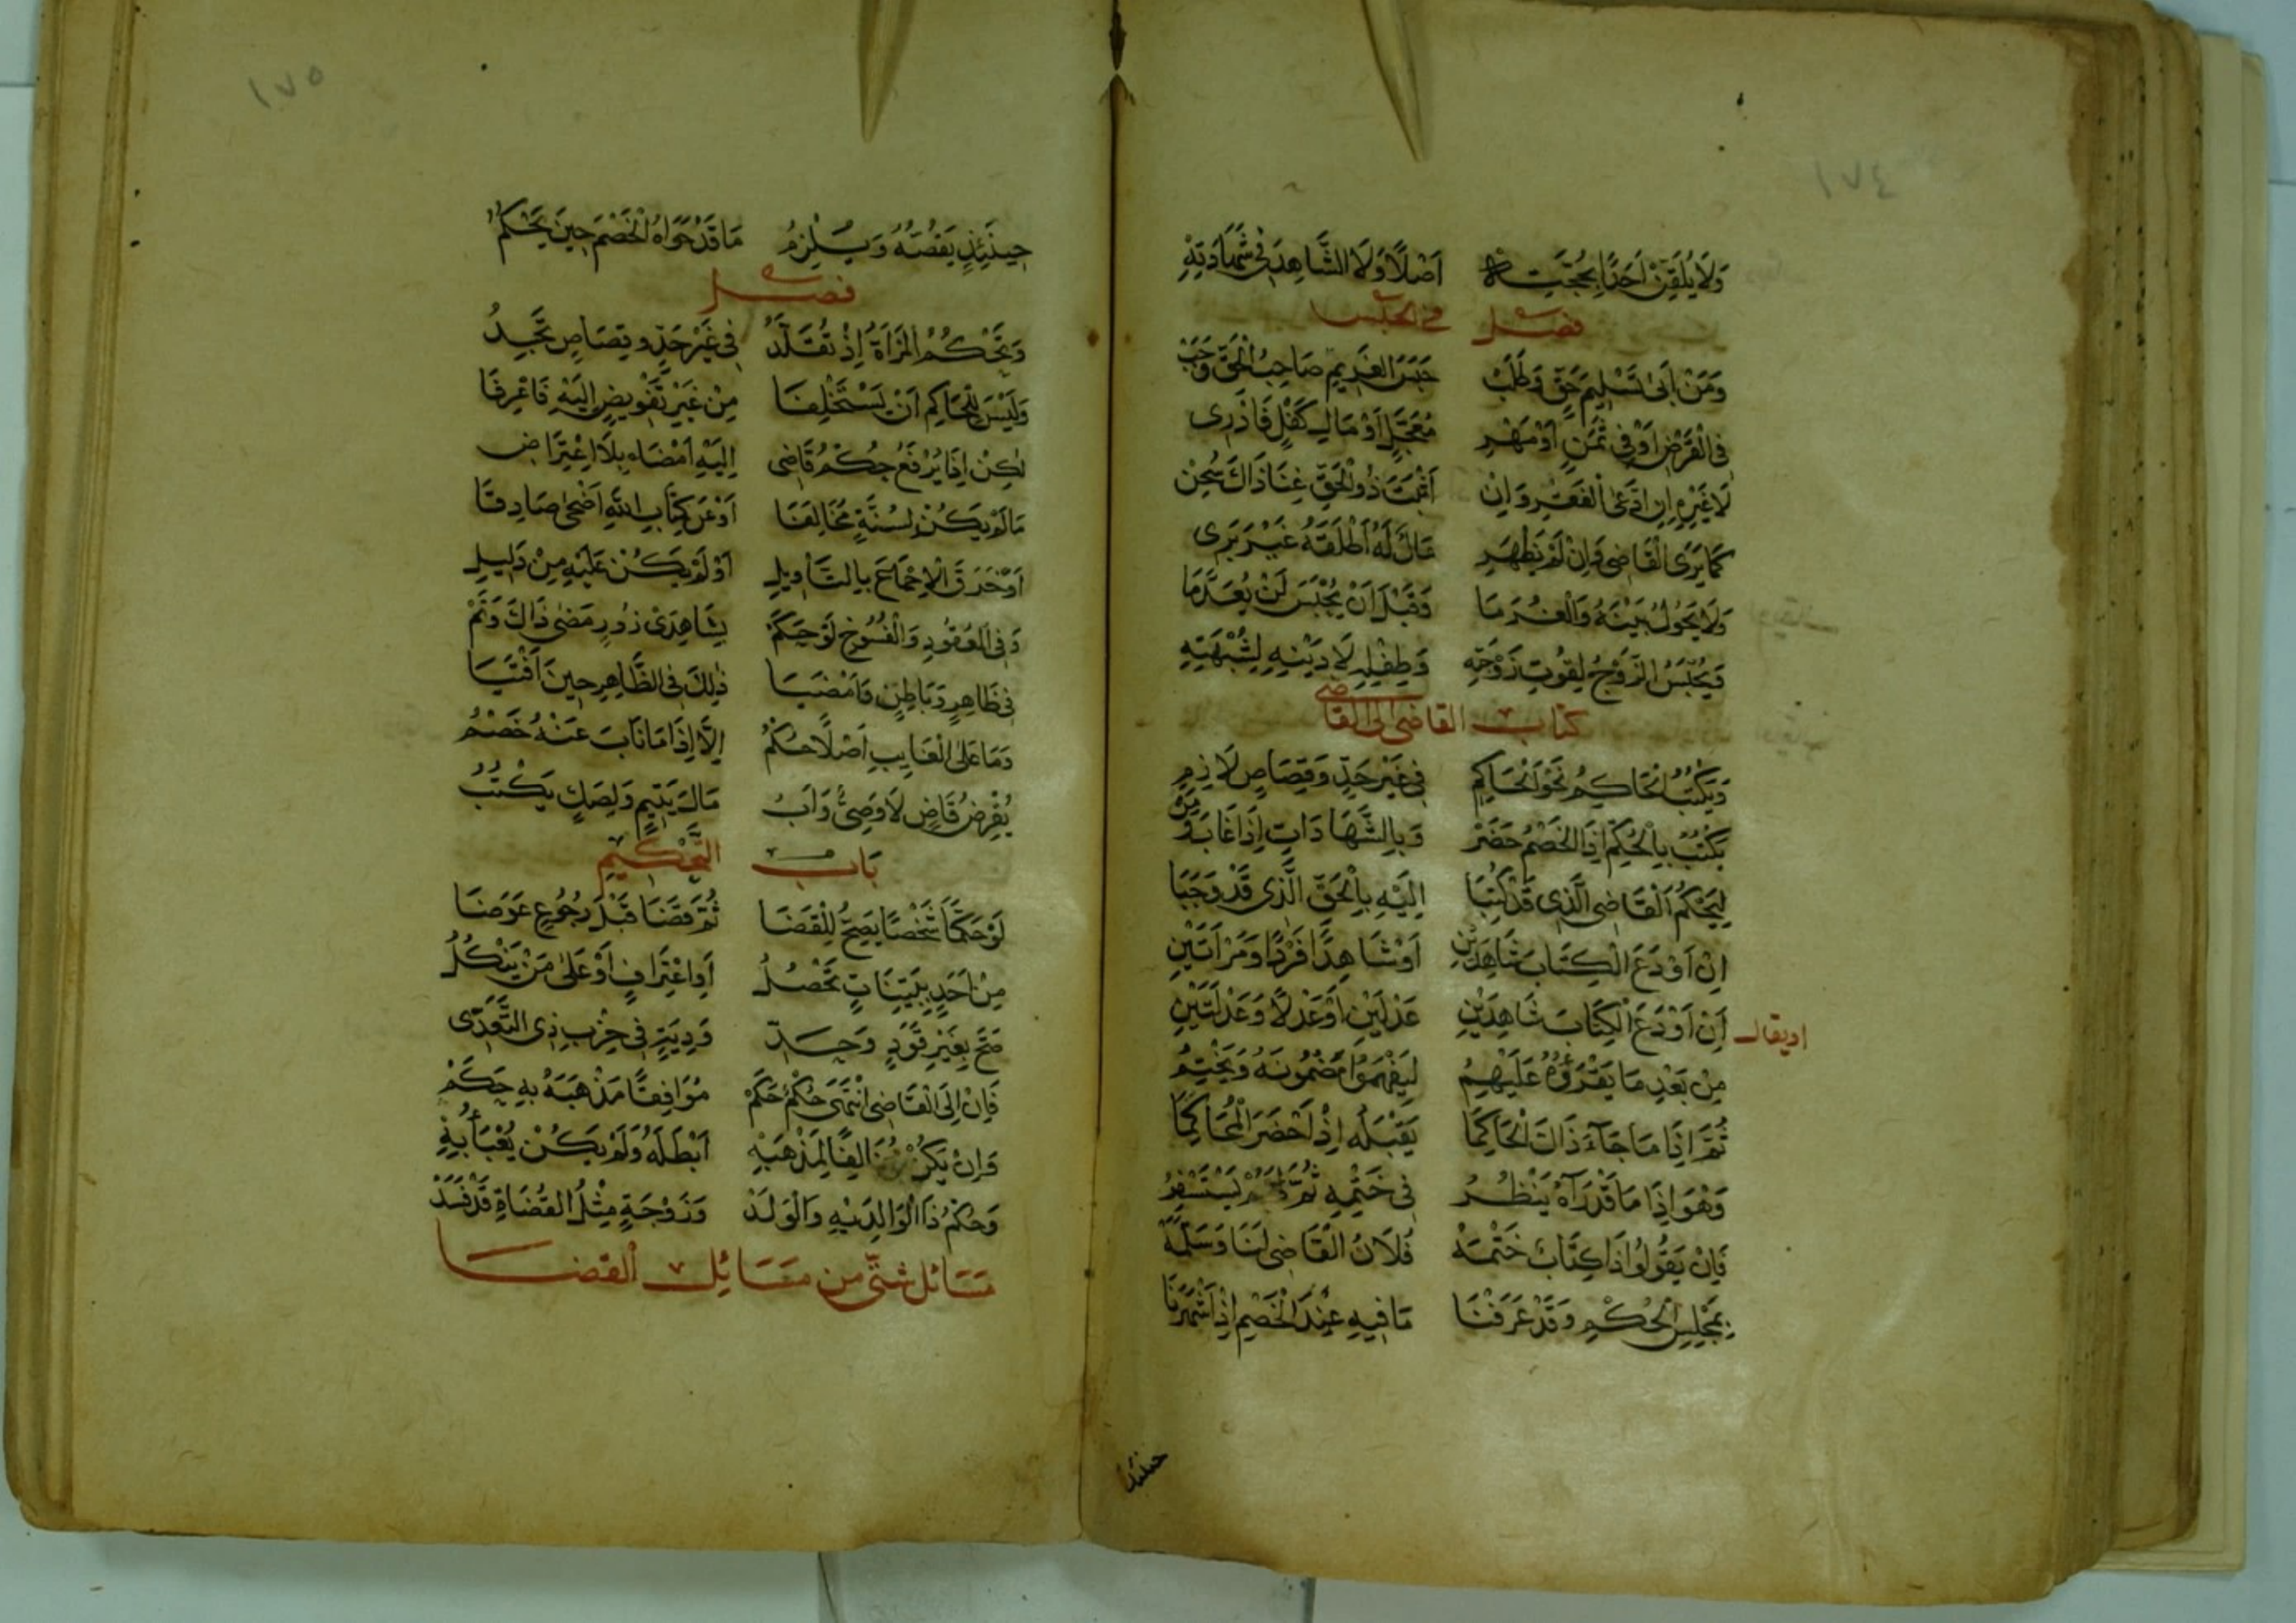 ١٧٤
وَلَا يُلَقِّنْ أَحَدًا بِحُجَّتِهْ أَصْلًا وَلَا الشَّاهِدَ فِي شَهَادَتِهْ
فصل في الحبس
وَمَنْ أَبَى تَسْلِيمَ حَقٍّ وَطَلَبْ حَبْسَ الغَرِيمِ صَاحِبُ الْحَقِّ وَجَبْ
فِي الْقَرْضِ أَوْ فِي ثَمَنٍ أَوْ مَهْرِ مُعَجَّلٍ أَوْ مَالِ كَفْلٍ فَاذْرِي
لَا غَيْرِهِ إِنِ ادَّعَى الْفَقْرَ وَإِنْ أَثْبَتَ ذُو الْحَقِّ غِنَا ذَاكَ سُجِنْ
كَمَا يَرَى الْقَاضِي فَإِنْ لَمْ يَظْهَرِ مَالٌ لَهُ أَطْلَقَهُ غَيْرَ بَرِي
وَلَا يَحُولُ بَيْنَهُ وَالْغُرَمَا وَقَبْلَ أَنْ يُحْبَسَ لَنْ يُعَدَّمَا
وَيُحْبَسُ الزَّوْجُ لِقُوتِ زَوْجَتِهِ وَطِفْلِهِ لَا دَيْنِهِ لِشُبْهَتِهِ
كتاب القاضي الى القاضي
وَيَكْتُبُ الْحَاكِمُ نَحْوَ الْحَاكِمِ فِي غَيْرِ حَدٍّ وَقِصَاصٍ لَازِمِ
يَكْتُبُ بِالْحُكْمِ إِذَا الْخَصْمُ حَضَرْ وَبِالشَّهَادَاتِ إِذَا غَابَ
لِيَحْكُمَ الْقَاضِي الَّذِي قَدْ كُتِبَا إِلَيْهِ بِالْحَقِّ الَّذِي قَدْ وَجَبَا
إِنْ أَوْدَعَ الْكِتَابَ شَاهِدَيْنِ أَوْ شَاهِدًا فَرْدًا وَمَرْأَتَيْنِ
اويقال إِنْ أَوْدَعَ الْكِتَابَ شَاهِدَيْنِ عَدْلَيْنِ أَوْ عَدْلًا وَعَدْلَتَيْنِ
مِنْ بَعْدِ مَا يَقْرَؤُهُ عَلَيْهِمُ لِيَفْهَمُوا مَضْمُونَهُ وَيَخْتِمُ
ثُمَّ إِذَا مَا جَاءَ ذَاكَ الْحَاكِمَا يَقْبَلُهُ إِذْ أَحْضَرَ الْمُحَاكِمَا
وَهْوَ إِذَا مَا قَدْ رَآهُ يَنْظُرُ فِي خَتْمِهِ ثُمَّ يَسْتَفْسِرُ
فَإِنْ يَقُولُوا ذَا كِتَابٌ خَتَمَهْ فُلَانٌ الْقَاضِي لَنَا وَسَلَّمَهْ
بِمَجْلِسِ الْحُكْمِ وَقَدْ عَرَفْنَا مَا فِيهِ عِنْدَ الْخَصْمِ إِذْ أَشْهَرْنَا
حينئذ
١٧٥
حِينَئِذٍ يَفُضُّهُ وَيُلْزِمُ مَا قَدْ حَوَاهُ الْخَصْمَ حِينَ يَحْكُمُ
فصل
وَتَحْكُمُ الْمَرْأَةُ إِذْ تُقَلَّدُ فِي غَيْرِ حَدٍّ وَقِصَاصٍ تَجِدُ
وَلَيْسَ لِلْحَاكِمِ أَنْ يَسْتَخْلِفَا مِنْ غَيْرِ تَفْوِيضٍ إِلَيْهِ فَاعْرِفَا
لٰكِنْ إِذَا يُرْفَعُ حُكْمُ قَاضِي إِلَيْهِ أَمْضَاهُ بِلَا اعْتِرَاضِ
مَا لَمْ يَكُنْ لِسُنَّةٍ مُخَالِفَا أَوْ عَنْ كِتَابِ اللّٰهِ أَضْحَى صَادِفَا
أَوْ خَرَقَ الْإِجْمَاعَ بِالتَّأْوِيلِ أَوْ لَمْ يَكُنْ عَلَيْهِ مِنْ دَلِيلِ
وَفِي الْعُقُودِ وَالْفُسُوخِ لَوْ حَكَمْ بِشَاهِدَيْ زُورٍ مَضَى ذَاكَ وَتَمْ
فِي ظَاهِرٍ وَبَاطِنٍ وَأَمْضَيَا ذٰلِكَ فِي الظَّاهِرِ حِينَ أَفْتَيَا
وَمَا عَلَى الْغَائِبِ أَصْلًا حُكْمُ إِلَّا إِذَا مَا نَابَ عَنْهُ خَصْمُ
يُقْرِضُ قَاضٍ لَا وَصِيٌّ وَأَبُ مَالَ يَتِيمٍ وَلِصَكٍّ يَكْتُبُ
بَاب التَّحْكِيمِ
لَوْ حَكَّمَا شَخْصًا يَصِحُّ لِلْقَضَا ثُمَّ قَضَا قَبْلَ رُجُوعٍ عَرَضَا
مِنْ أَحَدٍ بِبَيِّنَاتٍ تَحْصُلُ أَوِ اعْتِرَافٍ أَوْ عَلَى مَنْ يَنْكُلُ
صَحَّ بِغَيْرِ قَوَدٍ وَحَدِّ وَدِيَةٍ فِي حِزْبِ ذِي التَّعَدِّي
فَإِنْ إِلَى الْقَاضِي انْتَهَى حُكْمُ حَكَمْ مُوَافِقًا مَذْهَبَهُ بِهِ حَكَمْ
وَإِنْ يَكُنْ مُخَالِفًا لِمَذْهَبِهْ أَبْطَلَهُ وَلَمْ يَكُنْ يُعْبَأُ بِهْ
وَحُكْمُ ذَا لِوَالِدَيْهِ وَالْوَلَدْ وَزَوْجَةٍ مِثْلُ الْقُضَاةِ قَدْ فَسَدْ
مَسَائل شتى من مسَائِل القضا